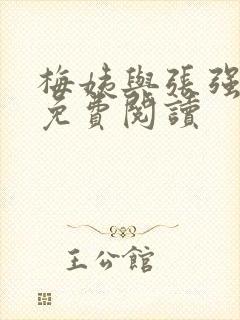 梅姨與張強
免費閱讀
王公館